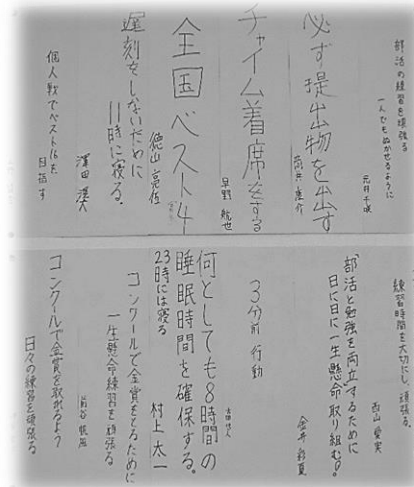 部活の練習を頑張る
一人でもぬかせるように
元井千咲
必ず提出物を出す
チャイム着席をする
早野航也
全国ベスト4
徳山亮佐
遅刻をしないために
11時に寝る。
澤田
個人戦でベスト16を
目指す
練習時間を大切にし、頑張る。
西山愛実
部活と勉強を両立するために
日に日に一生懸命取り組む。
金井彩夏
3分前行動
何としても8時間の
睡眠時間を確保する。
23時には寝る
村上太一
コンクールで金賞をとるために
一生懸命練習を頑張る
コンクールで金賞を取れるよう
日々の練習を頑張る